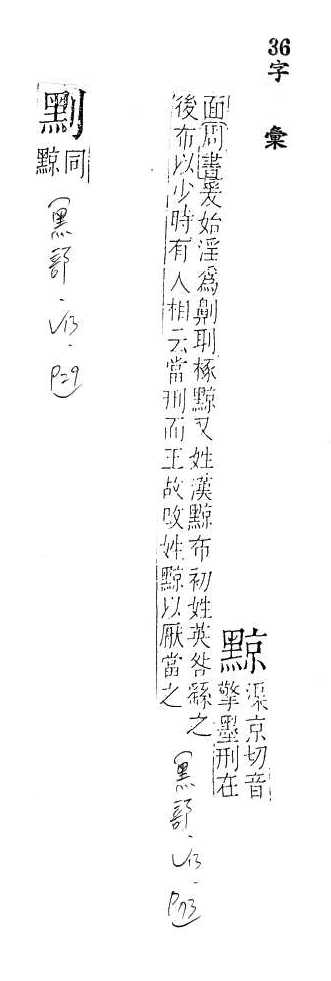 36字 彙
黥
渠京切音
擎墨刑在
面周書爰始淫為劓刵椓黥又姓漢黥布初姓英咎繇之
後布以少時有人相云當刑而王故改姓黥以厭當之
(黑部.V13.P73)
剠
同
黥
(黑部.V13.P29)